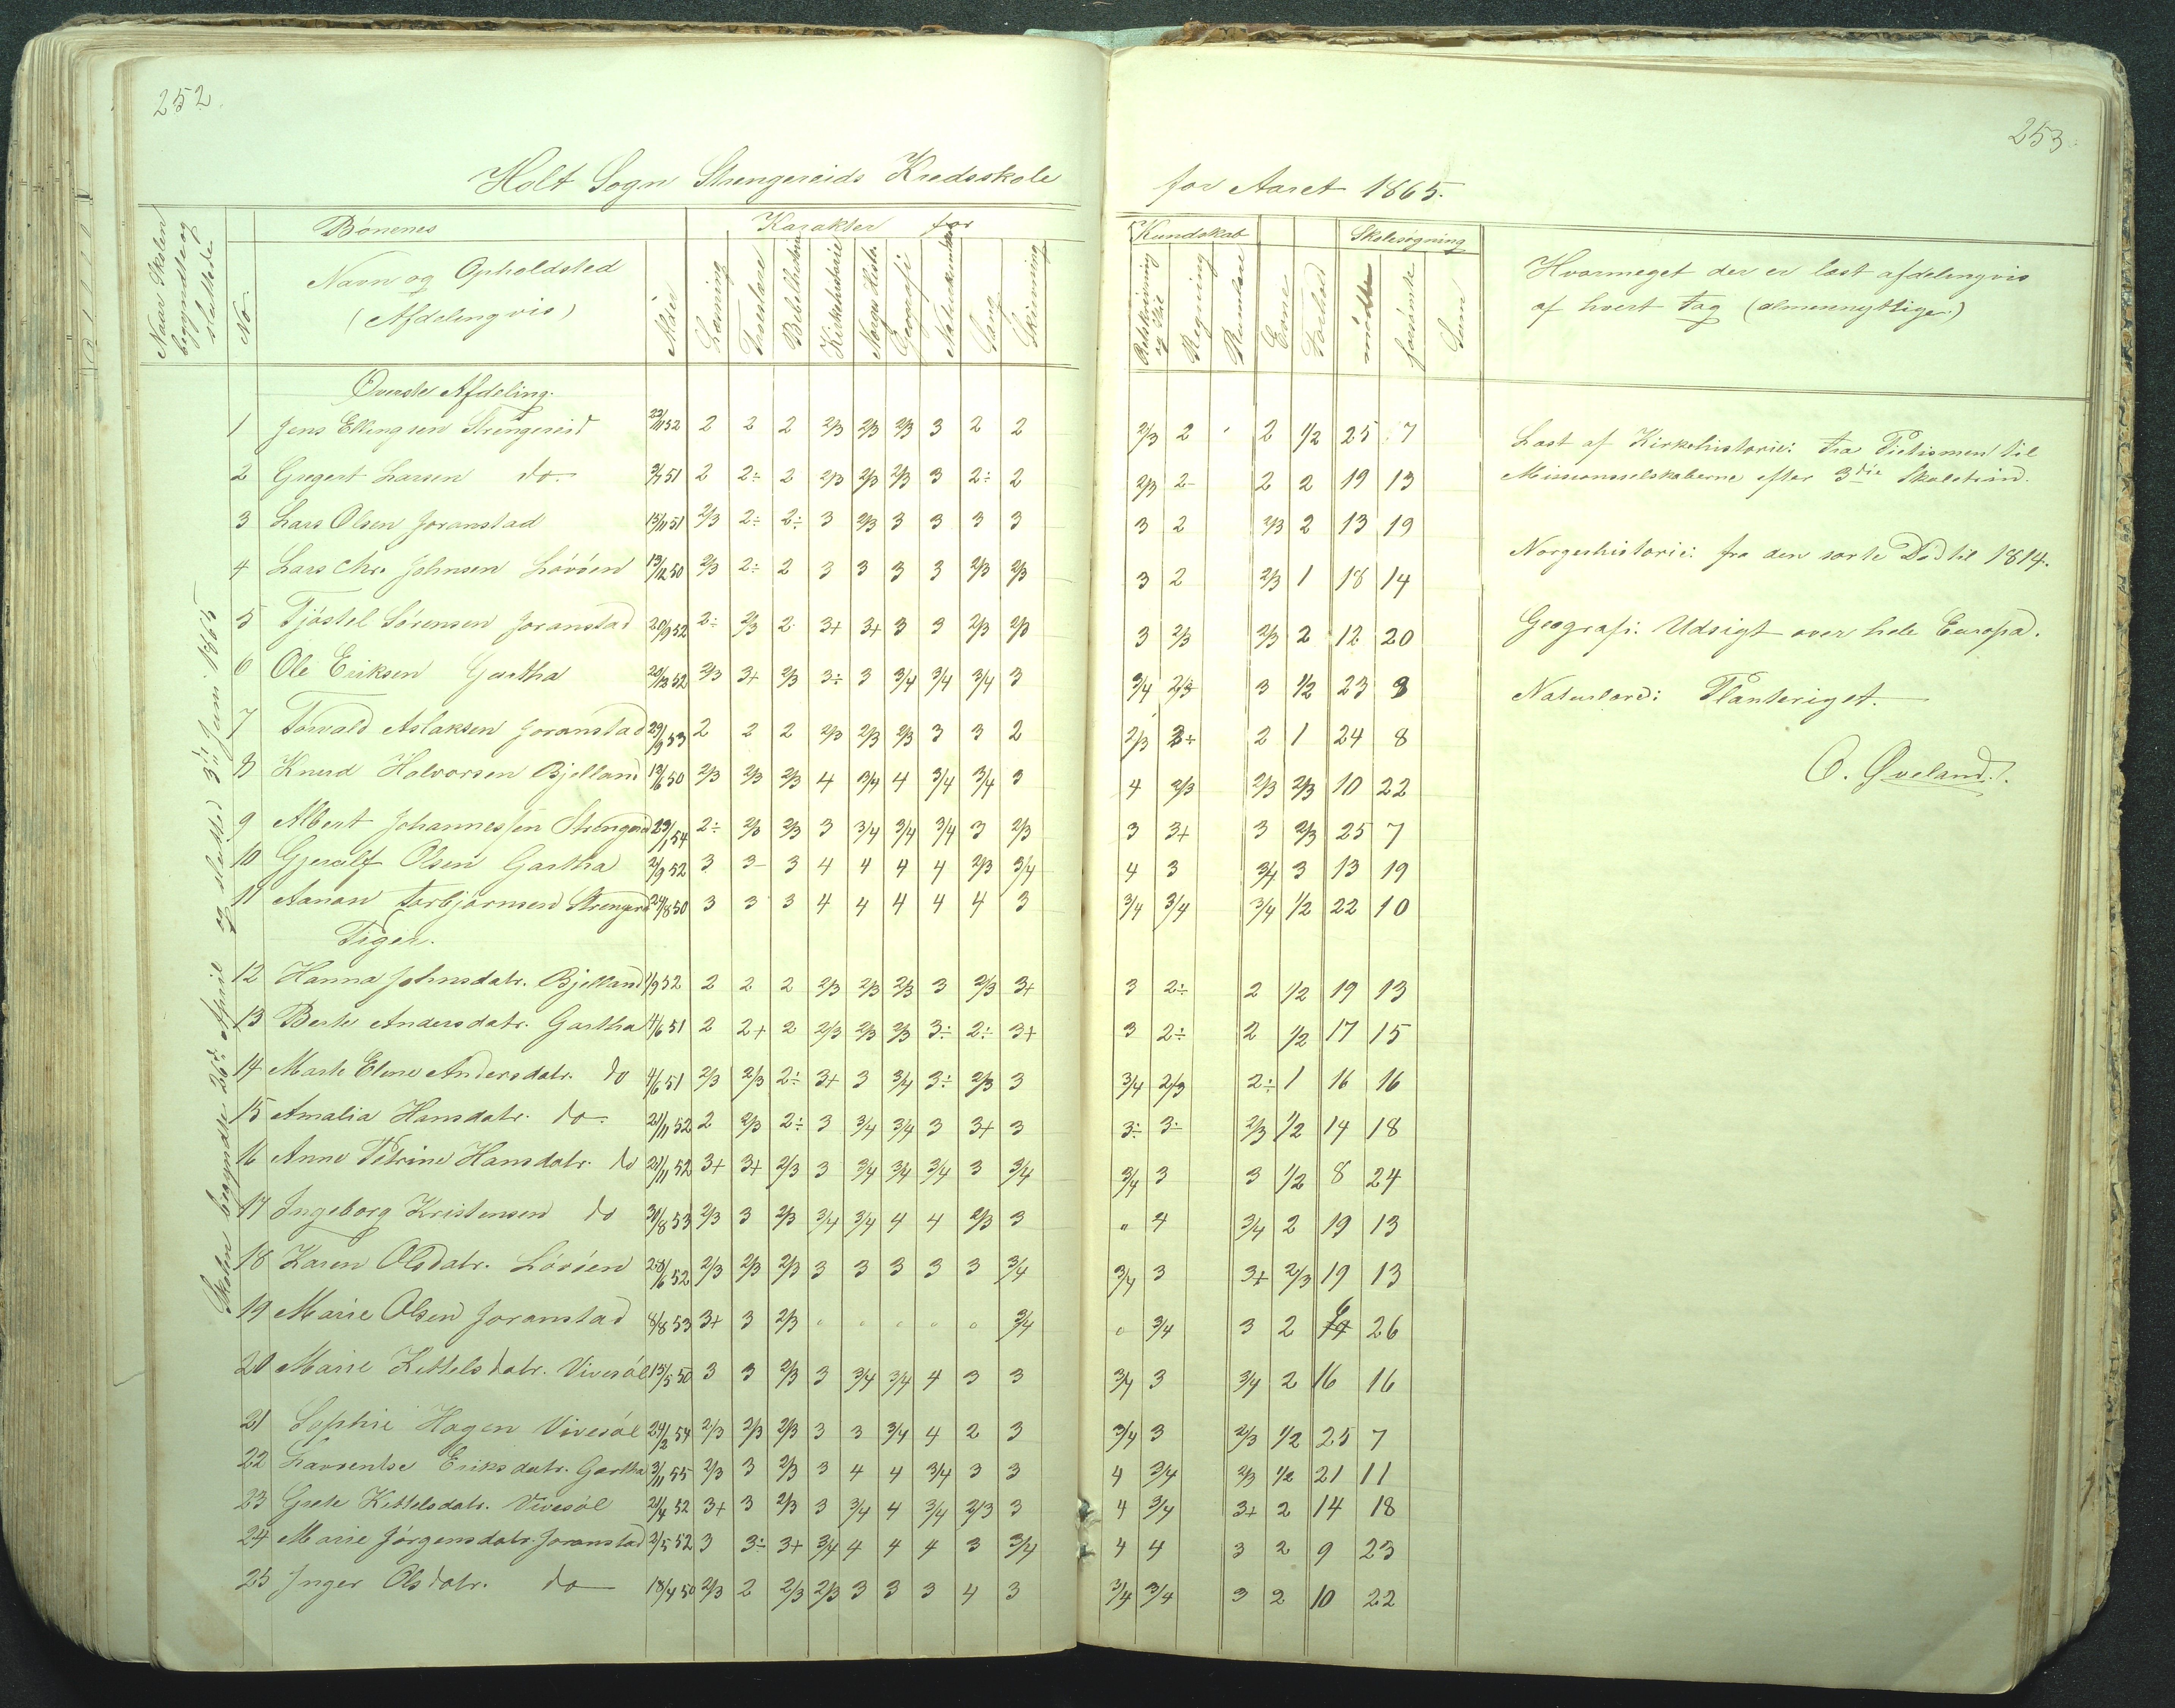 252.
253.
Holt Sogn Strengereids Kredsskole for Aaret 1865.
Naar Skolen begyndte og sluttede
No.
Børnenes
Navn og Opholdsted
(Afdelingvis)
Alder
Karakter for
Læsning
Troeslære
Bibelhistorie
Kirkehistorie
Norges Histr.
Geografi
Naturkundskab
Sang
Skrivning
Kundskab
Retskrivning og Stil
Regning
Evne
Forhold
Skolesøgning
mødte
forsømte
Sum
Hvormeget der er læst afdelingvis
af hvert Fag (almennyttiger)
Skolen begyndte 26de April og sluttede 3die Juni 1865
Øverste Afdeling.
1 Jens Ellingsen Strengereid 22/11 52 2 2 2 2/3 2/3 2/3 3 2 2 2/3 2 2 1/2 25 7
2 Gregert Larsen do. 51 2 2÷ 2 2/3 2/3 2/3 3 2÷ 2 2/3 2- 2 2 19 13
3 Lars Olsen Joranstad 15/11 51 2/3 2÷ 2÷ 3 2/3 3 3 3 3 3 2 2/3 2 13 19
4 Lars Chr. Johnsen Løvøen 13/12 50 2/3 2÷ 2 3 3 3 3 2/3 2/3 3 2 2/3 1 18 14
5 Tjøstel Sørensen Joranstad 20/9 52 2÷ 2/3 2 3+ 3+ 3 3 2/3 2/3 3 2/3 2/3 2 12 20
6 Ole Eriksen Gartha 52 2/3 3+ 2/3 3÷ 3 3/4 3/4 3/4 3 3/4 2/3 3 1/2 23 9
7 Torvald Aslaksen Joranstad 29/9 53 2 2 2 2/3 2/3 2/3 3 3 2 2/3 3+ 2 1 24 8
8 Knud Halvorsen Bjelland 13/6 50 2/3 2/3 2/3 4 3/4 4 3/4 3/4 3 4 2/3 2/3 2/3 10 22
9 Albert Johannessen Strengereid 29/1 54 2÷ 2/3 2/3 3 3/4 3/4 3/4 3 2/3 3 3+ 3 2/3 25 7
10 Gjeruilf Olsen Gartha 2/9 52 3 3- 3 4 4 4 4 2/3 3/4 4 3 3/4 3 13 19
11 Aanon Torbjørnsen Strengereid 24/8 50 3 3 3 4 4 4 4 4 3 3/4 3/4 3/4 1/2 22 10
Piger.
12 Hanna Johnsdatr. Bjelland 1/9 52 2 2 2 2/3 2/3 2/3 3 2/3 3+ 3 2÷ 2 1/2 19 13
13 Berte Andersdatr. Gartha 4/6 51 2 2+ 2 2/3 2/3 2/3 3÷ 2÷ 3+ 3 2÷ 2 1/2 17 15
14 Marte Elene Andersdatr. do 4/6 51 2/3 2/3 2÷ 3+ 3 3/4 3÷ 2/3 3 3/4 2/3 2÷ 1 16 16
15 Amalia Hansdatr. do. 21/11 52 2 2/3 2÷ 3 3/4 3/4 3 3+ 3 3÷ 3÷ 2/3 1/2 14 18
16 Anne Petrine Hansdatr. do 21/11 52 3+ 3+ 2/3 3 3/4 3/4 3/4 3 3/4 3/4 3 3 1/2 8 24
17 Ingeborg Kristensen do 31/8 53 2/3 3 2/3 3/4 3/4 4 4 2/3 3 " 4 3/4 2 19 13
18 Karen Olsdatr. Løvøen 28/6 52 2/3 2/3 2/3 3 3 3 3 3 3/4 3/4 3 3+ 2/3 19 13
19 Marie Olsen Joranstad 8/8 53 3+ 3 2/3 " " " " " 3/4 " 3/4 3 2 6 26
20 Marie Kittelsdatr. Vivesøl 15/5 50 3 3 2/3 3 3/4 3/4 4 3 3 3/4 3 3/4 2 16 16
21 Sophie Hagen Vivesøl 24/2 54 2/3 2/3 2/3 3 3 3/4 4 2 3 3/4 3 2/3 1/2 25 7
22 Lavrentse Eriksdatr. Gartha 3/11 55 2/3 3 2/3 3 4 4 3/4 3 3 4 3/4 2/3 1/2 21 11
23 Grete Kittelsdatr. Vivesøl 21/4 52 3+ 3 2/3 3 3/4 4 3/4 2/3 3 4 3/4 3+ 2 14 18
24 Marie Jørgensdatr. Joranstad 2/5 52 3 3÷ 3+ 3/4 4 4 4 3 3/4 4 4 3 2 9 23
25 Inger Olsdatr. do 18/4 50 2/3 2 2/3 2/3 3 3 3 4 3 3/4 3/4 3 2 10 22
Læst af Kirkehistorie: fra Pietismen til
Missionsselskaberne efter 3die Skoletrin.
Norgeshistorie: fra den sorte Død til 1814.
Geografi: Udsigt over hele Europa.
Naturlære: Planteriget.
O. Øveland.